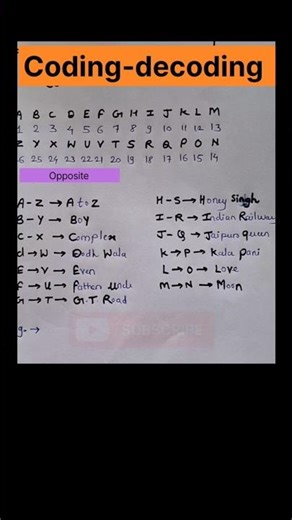 Coding-decoding
A B C D E F G H I J K L M
1 2 3 4 5 6 7 8 9 10 11 12 13
Z Y X W U V T S R Q P O N
6 25 24 23 22 21 20 19 18 17 16 15 14
Opposite
A - Z → A to Z
B - Y → Boy
C - X → Complex
d → W → Dodh Wala
E → V → Even
F → U →
G → T → G.T Road
H - S → Honey Singh
I - R → Indian Railway
J - Q → Jaipur Queen
K → P → Kala Pani
L → O → Love
M → N → Moon
g. →
SUBSCRIBE